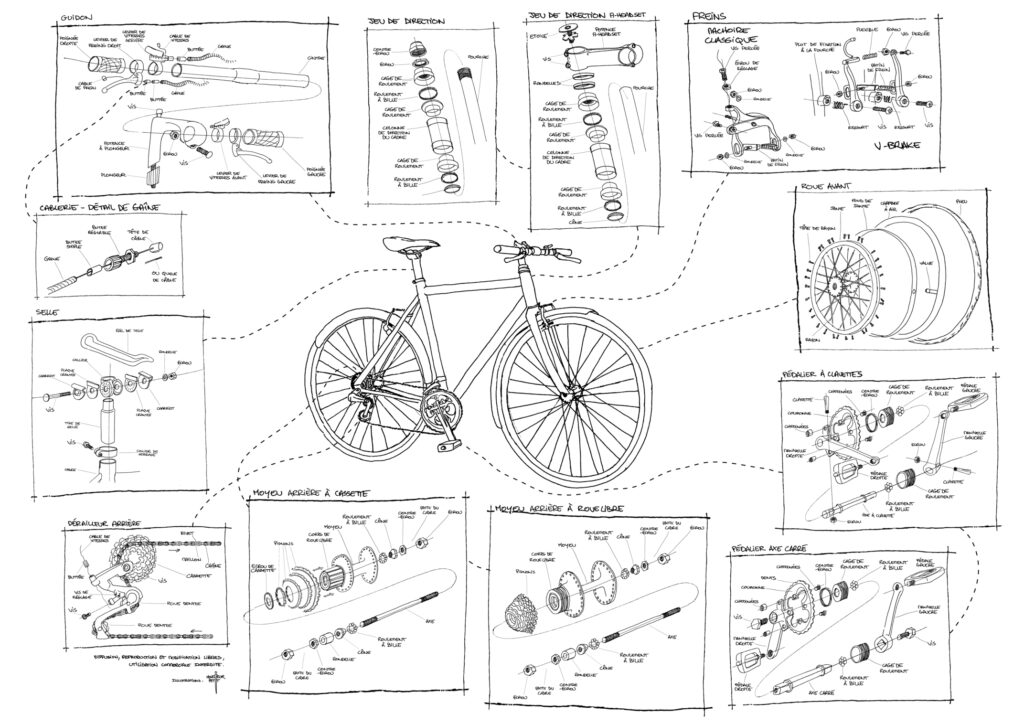 GUIDON
POIGNÉE
DROITE
LEVIER DE
FREIN DROIT
LEVIER DE
VITESSES
ARRIÈRE
CÂBLE DE
VITESSES
BUTÉE
GAINE
CINTRE
CÂBLE DE
FREIN
VIS
BUTÉE
BUTÉE
GAINE
POTENCE
À PLONGEUR
ÉCROU
VIS
PLONGEUR
LEVIER DE
VITESSES AVANT
LEVIER DE
FREIN GAUCHE
POIGNÉE
GAUCHE
JEU DE DIRECTION
CONTRE
-ÉCROU
ÉCROU
CAGE DE
ROULEMENT
ROULEMENT
À BILLE
CAGE DE
ROULEMENT
COLONNE
DE DIRECTION
DU CADRE
CAGE DE
ROULEMENT
ROULEMENT
À BILLE
FOURCHE
JEU DE DIRECTION A-HEADSET
ETOILE
POTENCE
A-HEADSET
VIS
RONDELLES
CAGE DE
ROULEMENT
ROULEMENT
À BILLE
CAGE DE
ROULEMENT
COLONNE
DE DIRECTION
DU CADRE
CAGE DE
ROULEMENT
ROULEMENT
À BILLE
CÔNE
FOURCHE
FREINS
MACHOIRE
CLASSIQUE
VIS PERCÉE
ÉCROU DE
RÉGLAGE
RONDELLE
VIS PERCÉE
ÉCROU
RONDELLE
ÉCROU
PATIN DE
FREIN
PLOT DE FIXATION
À LA FOURCHE
FLEXIBLE
ÉCROU
VIS PERCÉE
PATIN
DE FREIN
ÉCROU
RESSORT
VIS
RESSORT
VIS
V-BRAKE
CABLERIE - DÉTAIL DE GAÎNE
GAINE
BUTÉE
SIMPLE
BUTÉE
RÉGLABLE
TÊTE DE
CÂBLE
OU QUEUE
DE CÂBLE
ROUE AVANT
TÊTE DE RAYON
JANTE
FOND DE
JANTE
CHAMBRE
À AIR
PNEU
VALVE
RAYON
SELLE
RAIL DE SELLE
COLLIER
CHARIOT
PLAQUE
CRANTÉE
RONDELLE
ÉCROU
VIS
PLAQUE
CRANTÉE
CHARIOT
TIGE DE
SELLE
VIS
COLLIER DE
SERRAGE
CADRE
PÉDALIER À CLAVETTES
CLAVETTE
COURONNE
CHEMINÉES
CONTRE
-ÉCROU
CAGE DE
ROULEMENT
ROULEMENT
À BILLE
PÉDALE
GAUCHE
CHEMINÉES
MANIVELLE
DROITE
PÉDALE
DROITE
ÉCROU
MANIVELLE
GAUCHE
CLAVETTE
CAGE DE
ROULEMENT
ROULEMENT
À BILLE
AXE À CLAVETTE
ÉCROU
DÉRAILLEUR ARRIÈRE
CÂBLE DE
VITESSES
RIVET
MAILLON
CHAÎNE
CASSETTE
BUTÉE
VIS DE
RÉGLAGE
VIS
ROUE DENTÉE
ROUE DENTÉE
MOYEU ARRIÈRE À CASSETTE
ÉCROU DE
CASSETTE
PIGNONS
CORPS DE
ROUE LIBRE
MOYEU
ROULEMENT
À BILLE
CÔNE
CONTRE
-ÉCROU
PATTE DU
CADRE
ÉCROU
AXE
ROULEMENT
À BILLE
CÔNE
RONDELLE
CONTRE
-ÉCROU
PATTE DU
CADRE
ÉCROU
MOYEU ARRIÈRE À ROUE LIBRE
PIGNONS
CORPS DE
ROUE LIBRE
MOYEU
ROULEMENT
À BILLE
CÔNE
CONTRE
-ÉCROU
PATTE DU
CADRE
ÉCROU
AXE
ROULEMENT
À BILLE
CÔNE
RONDELLE
CONTRE
-ÉCROU
PATTE DU
CADRE
ÉCROU
PÉDALIER AXE CARRÉ
COURONNE
DENTS
CHEMINÉES
CONTRE
-ÉCROU
CAGE DE
ROULEMENT
ROULEMENT
À BILLE
PÉDALE
GAUCHE
CHEMINÉES
VIS
MANIVELLE
DROITE
PÉDALE
DROITE
MANIVELLE
GAUCHE
VIS
CAGE DE
ROULEMENT
ROULEMENT
À BILLE
AXE CARRÉ
DIFFUSION, REPRODUCTION ET MODIFICATION LIBRES,
UTILISATION COMMERCIALE INTERDITE.
ILLUSTRATIONS :